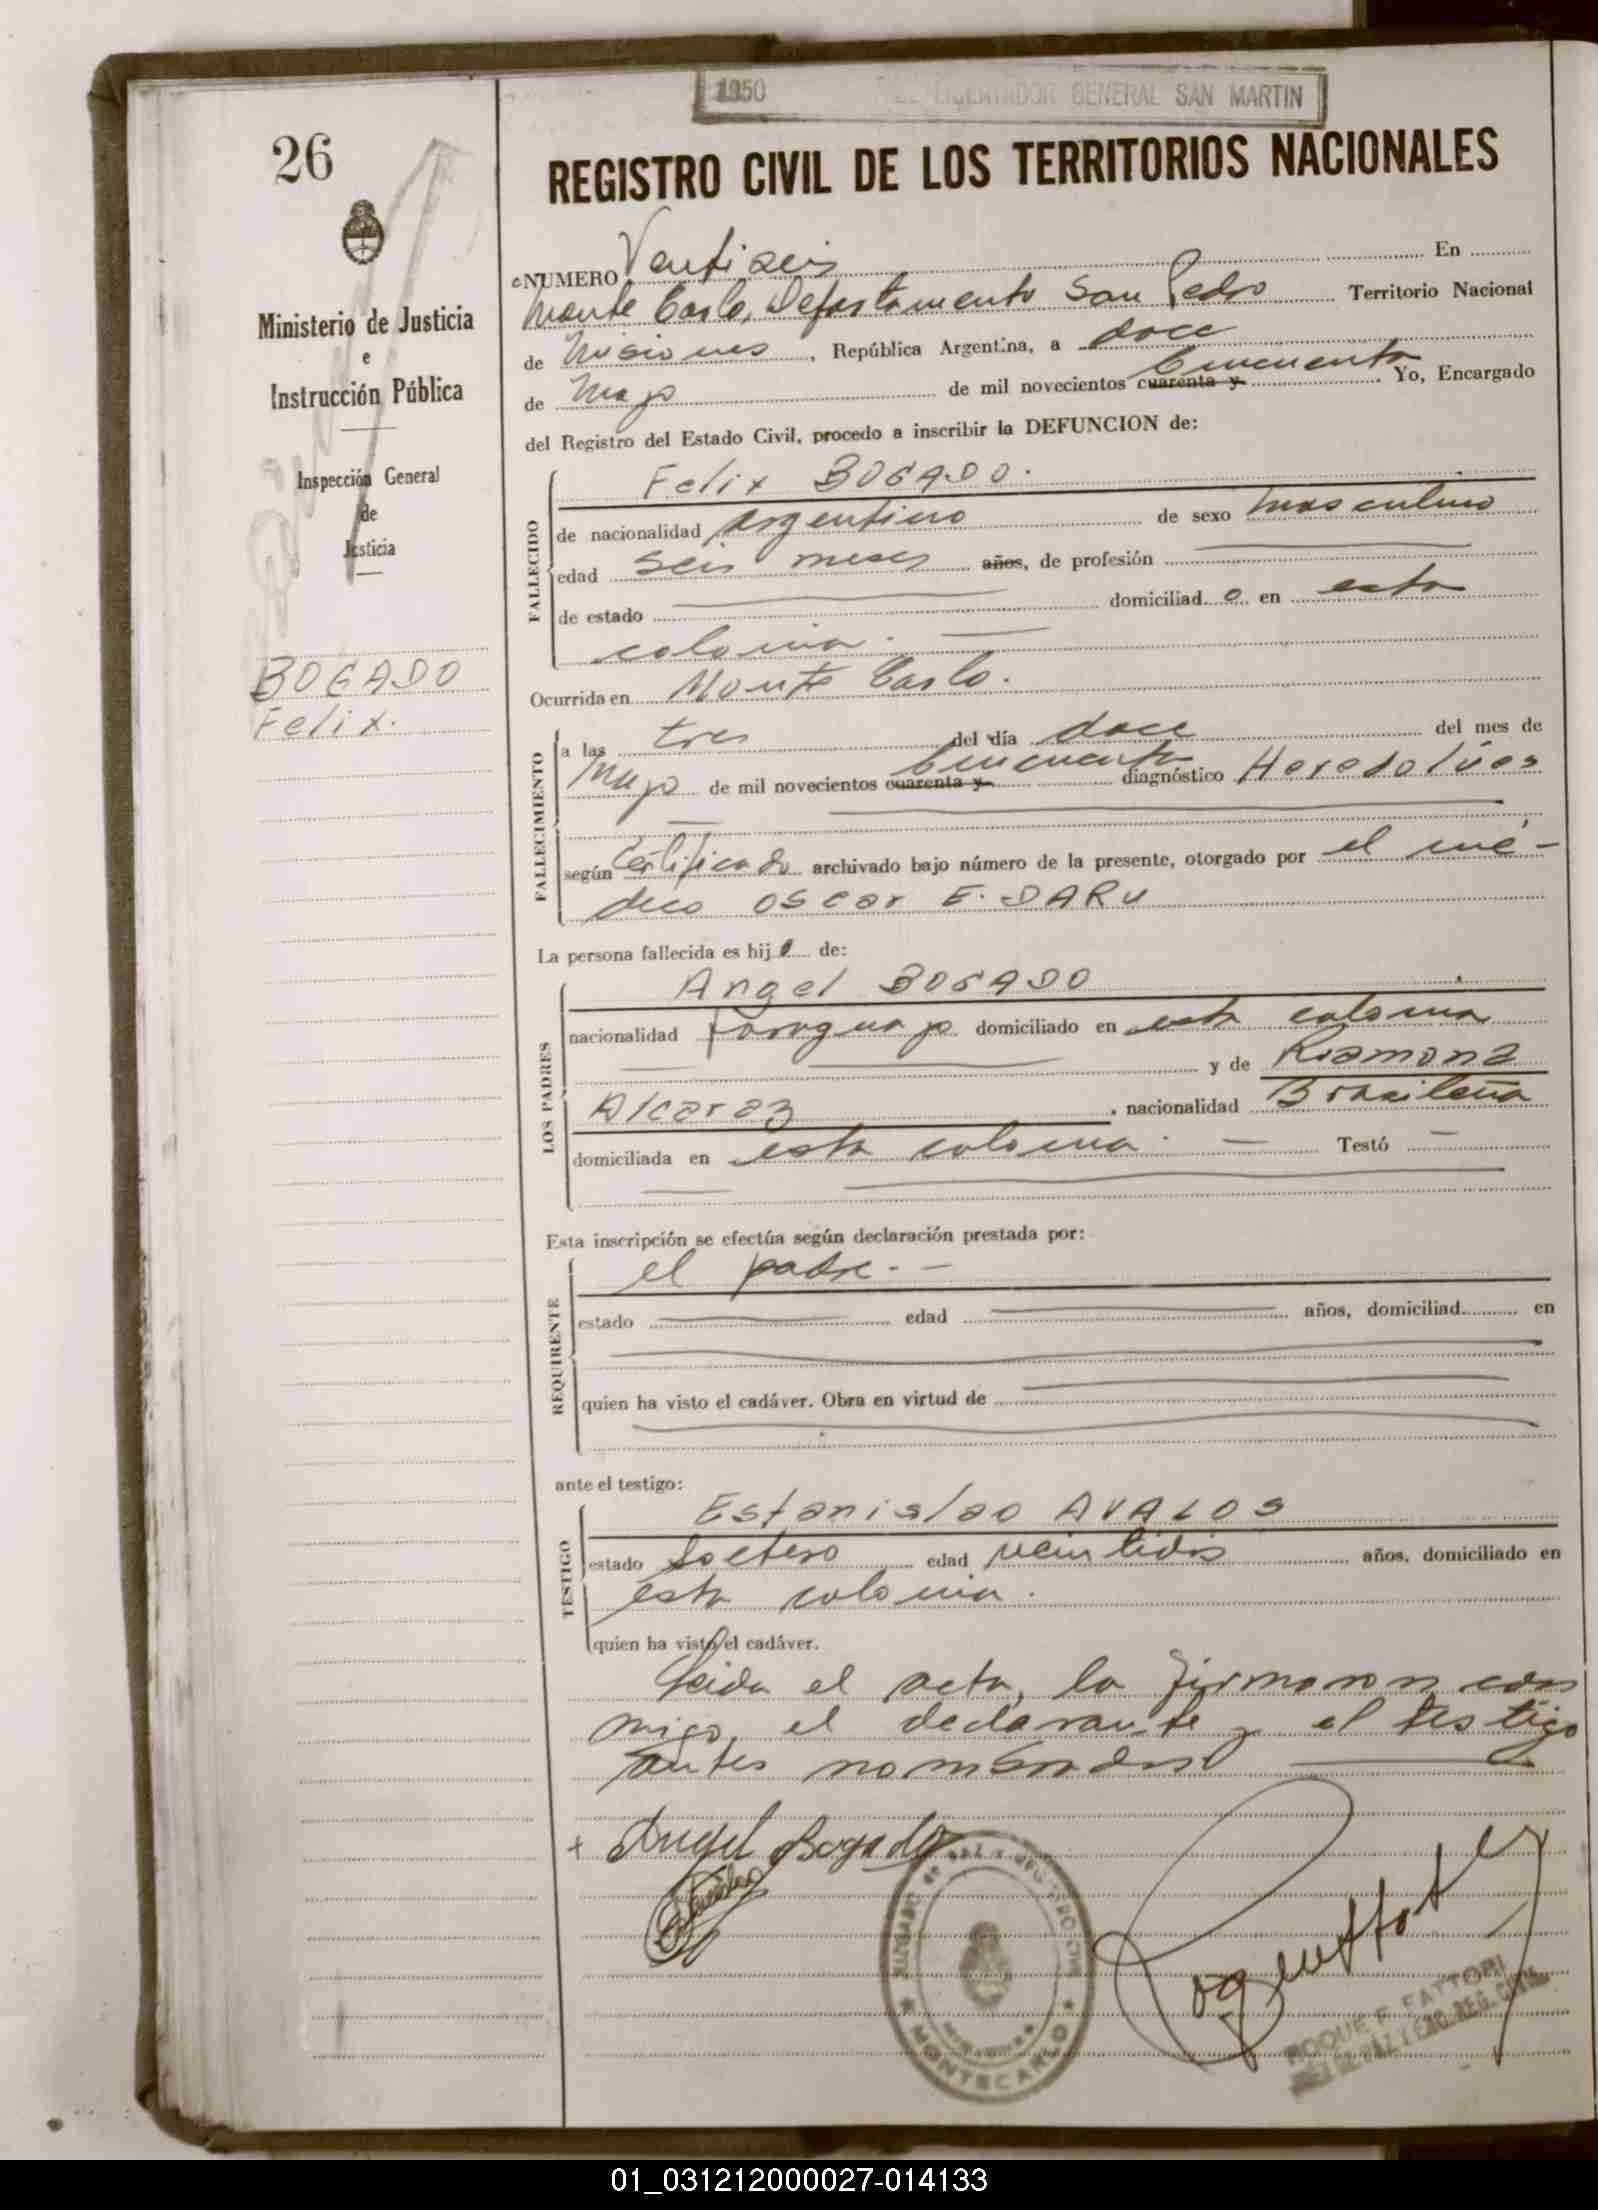 1950 EL LIBERTADOR GENERAL SAN MARTIN
26
REGISTRO CIVIL DE LOS TERRITORIOS NACIONALES
Ministerio de Justicia
e
Instrucción Pública
Inspección General
de
Justicia
BOGADO
Felix.
NUMERO Ventiseis En
Monte Carlo, Departamento San Pedro Territorio Nacional
de Misiones, República Argentina, a doce
de Mayo de mil novecientos cuarenta y Cincuenta Yo, Encargado
del Registro del Estado Civil, procedo a inscribir la DEFUNCION de:
FALLECIDO
Felix BOGADO.
de nacionalidad argentino de sexo masculino
edad seis meses años, de profesión
de estado domiciliad o en esta
colonia.
Ocurrida en Monte Carlo.
FALLECIMIENTO
a las tres del día doce del mes de
Mayo de mil novecientos cuarenta y Cincuenta diagnóstico Heredolúes
según Certificado archivado bajo número de la presente, otorgado por el mé-
dico Oscar E. DARU
La persona fallecida es hijo de:
LOS PADRES
Angel BOGADO
nacionalidad paraguayo domiciliado en esta colonia
y de Ramona
Alcaraz, nacionalidad Brasileña
domiciliada en esta colonia. Testó
Esta inscripción se efectúa según declaración prestada por:
REQUIRENTE
el padre.-
estado edad años, domiciliad en
quien ha visto el cadáver. Obra en virtud de
ante el testigo:
TESTIGO
Estanislao AVALOS
estado soltero edad veintidos años, domiciliado en
esta colonia.
quien ha visto el cadáver.
Leida el acta, la firmaron con
migo, el declarante y el testigo
antes nombrados
+ Angel Bogado
JUZGADO DE PAZ Y REGISTRO CIVIL
MONTECARLO
ROQUE F. FATTORI
JUEZ DE PAZ Y ENC. REG. CIVIL
01_031212000027-014133